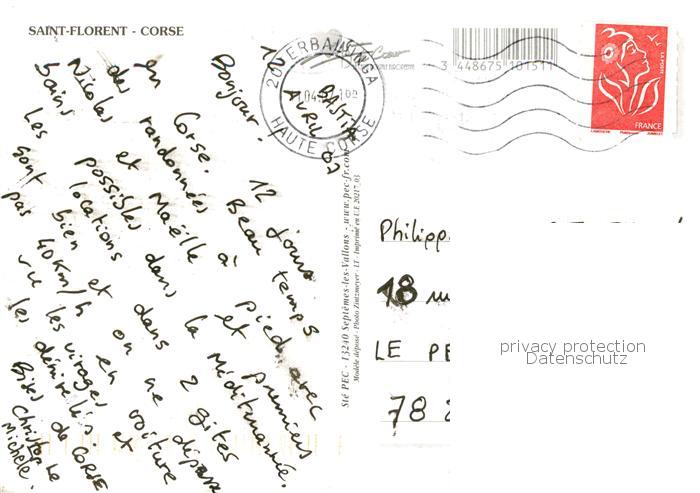 SAINT-FLORENT - CORSE
10
BASTIA
AVRIL 07
Bonjour.
12 jours
en Corse. Beau temps
des randonnées à pied avec
Nicolas et Maëlle et premiers
bains possibles dans la Méditerranée.
Les locations dans 2 gîtes
sont bien et on ne dépasse
pas 40 Km/h en voiture et
vu les virages et
les dénivelés. de CORSE
Bises Christophe
Michèle.
20 VERBALAVINGA
HAUTE CORSE
3 448675 101511
LA POSTE
FRANCE
Sté PEC - 13240 Septèmes-les-Vallons - www.pec-fr.com
Modèle déposé - Photo Zintzmeyer - LT - Imprimé en U.E 20217_03
Philipp
18
LE PE
78 2
privacy protection
Datenschutz